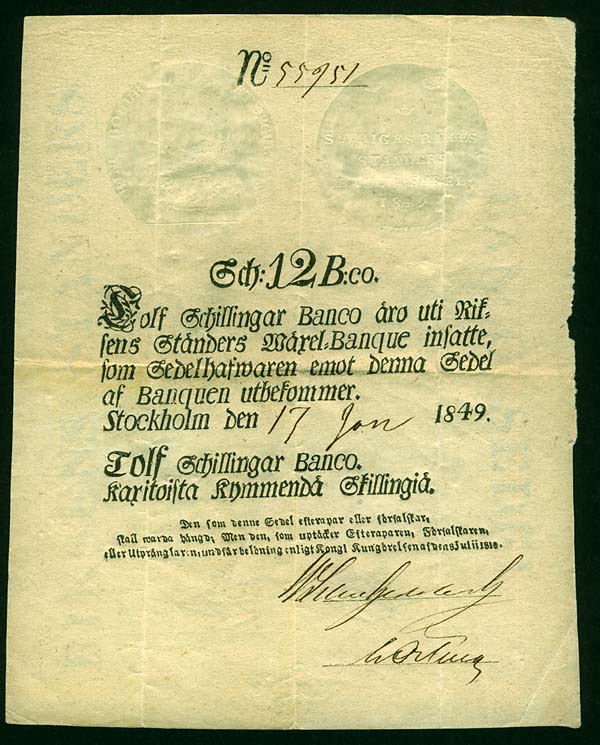 No 55951
SWERIGES RIKES
STÄNDERS
1849
Sch: 12 B:co.
Tolf Schillingar Banco äro uti Rik-
sens Ständers Wäxel-Banque insatte,
som Sedelhafwaren emot denna Sedel
af Banquen utbekommer.
Stockholm den 17 Jan 1849.
Tolf Schillingar Banco.
Kaxitoista Kymmendä Skillingiä.
Den som denne Sedel efterapar eller förfalskar,
skall warda hängd; Men den, som uptäcker Efteraparen, Förfalskaren,
eller Utprånglaren, undfår belöning enligt Kongl Kungörelsen af den